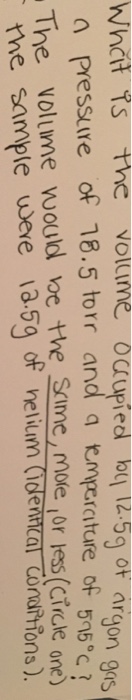 What is the volume occupied by 12.5g of argon gas
a pressure of 78.5 torr and a temperature of 595°C?
The volume would be the same, more, or less (circle one)
the sample were 12.5g of helium (identical conditions).